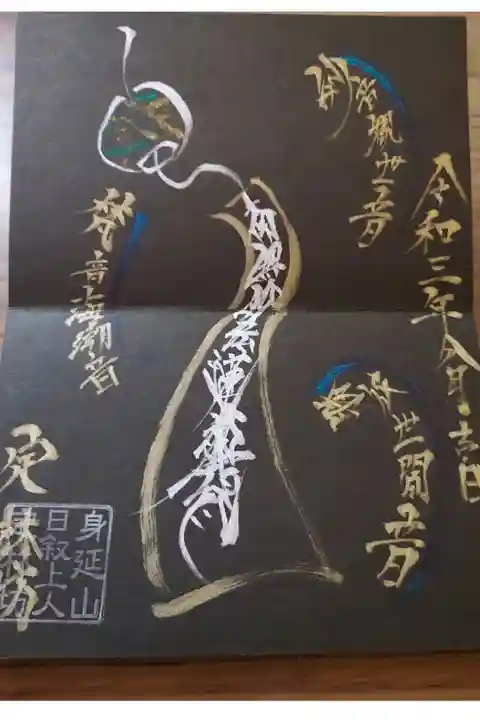 令和三年八月吉日
妙音觀世音
勝彼世間音
南無妙法蓮華経
梵音海潮音
定林坊
身延山
日叙上人